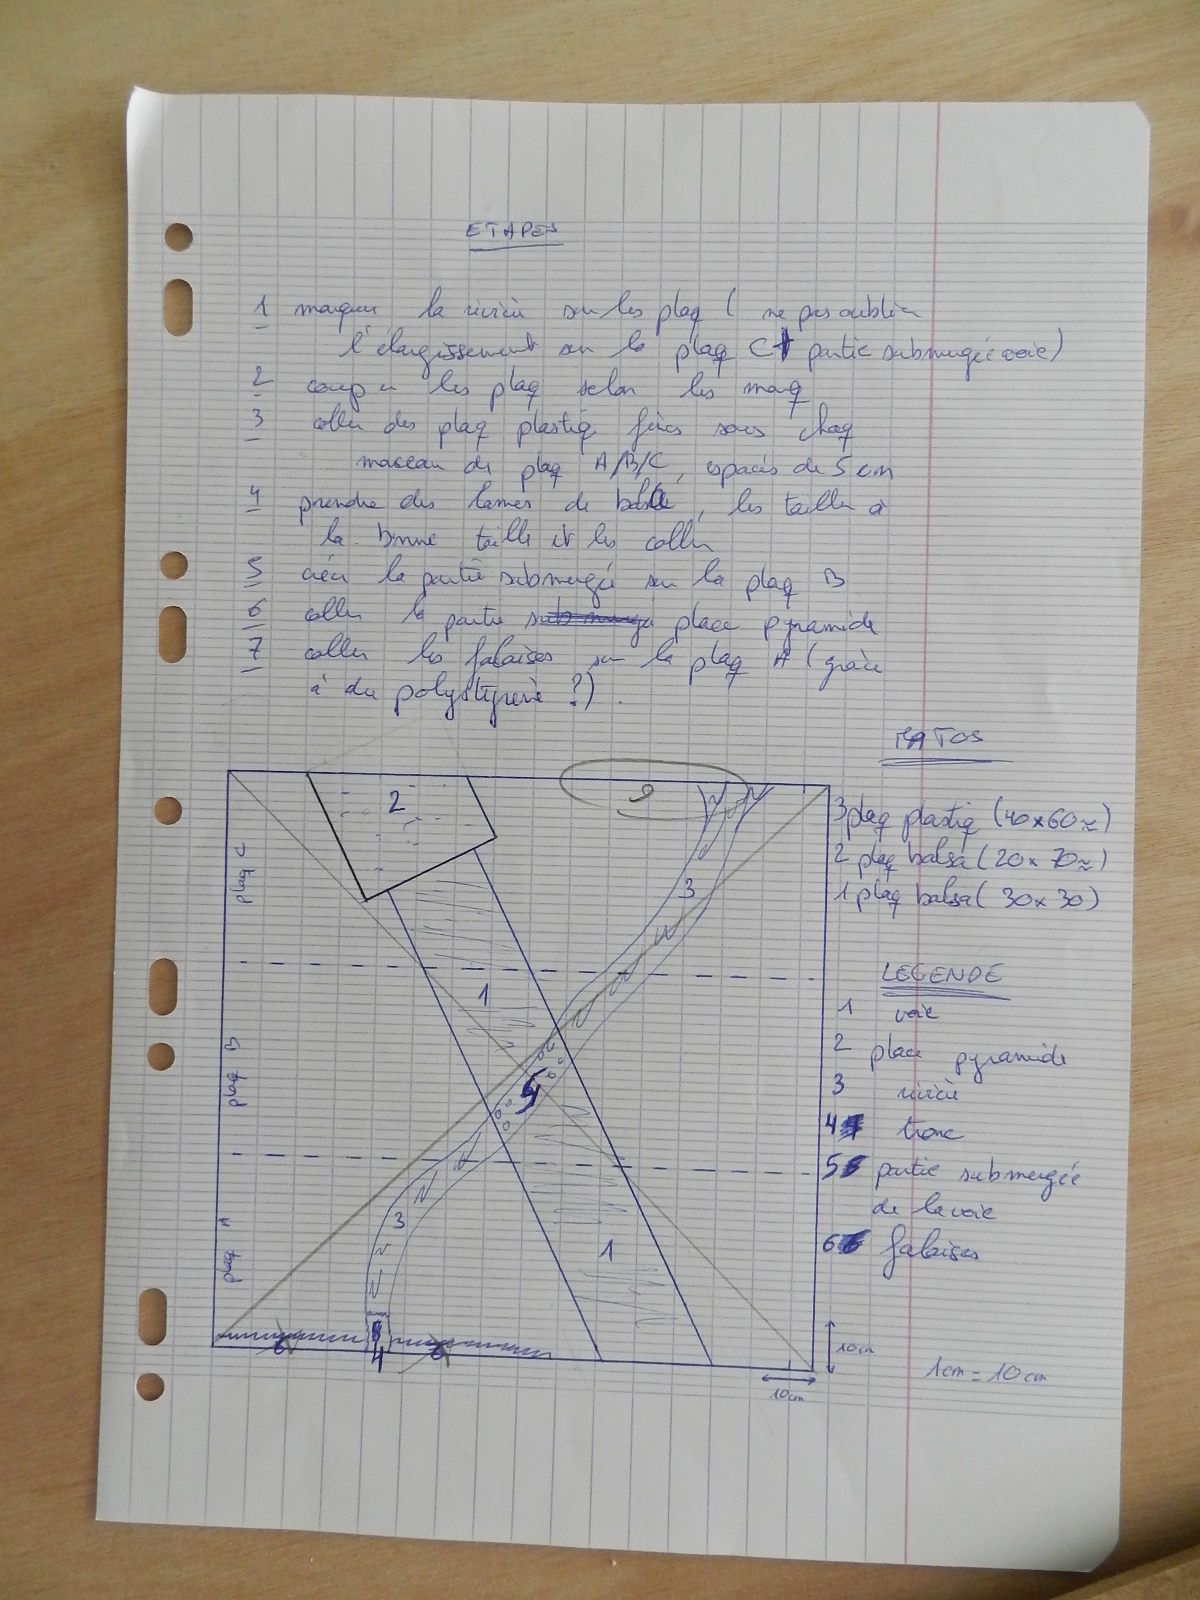 ETAPES
1 marquer la rivière sur les plaq ( ne pas oublier
l'élargissement sur la plaq C + partie submergée voie)
2 couper les plaq selon les marq
3 coller des plaq plastiq fines sous chaq
morceau de plaq A/B/C, espacés de 5 cm
4 prendre des lames de balsa, les tailler à
la bonne taille et les coller
5 créer la partie submergée sur la plaq B
6 coller la partie place pyramide
7 coller les falaises sur la plaq A (grâce
à du polystyrène ?).
MATOS
3 plaq plastiq (40x60≈)
2 plaq balsa (20x70≈)
1 plaq balsa (30x30)
LEGENDE
1 voie
2 place pyramide
3 rivière
4 tronc
5 partie submergée
de la voie
6 falaises
plaq C
plaq B
plaq A
2
3
1
5
3
1
6
4
6
10cm
10cm
1cm = 10cm